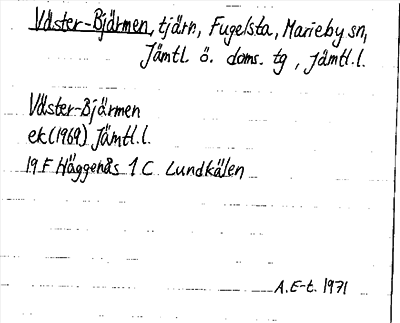 Väster-Bjärmen, tjärn, Fugelsta, Marieby sn,
Jämtl. ö. doms. tg, Jämtl.l.
Väster-Bjärmen
ek(1969) Jämtl.l.
19 F Häggenås 1 C Lundkälen
A.E-t. 1971